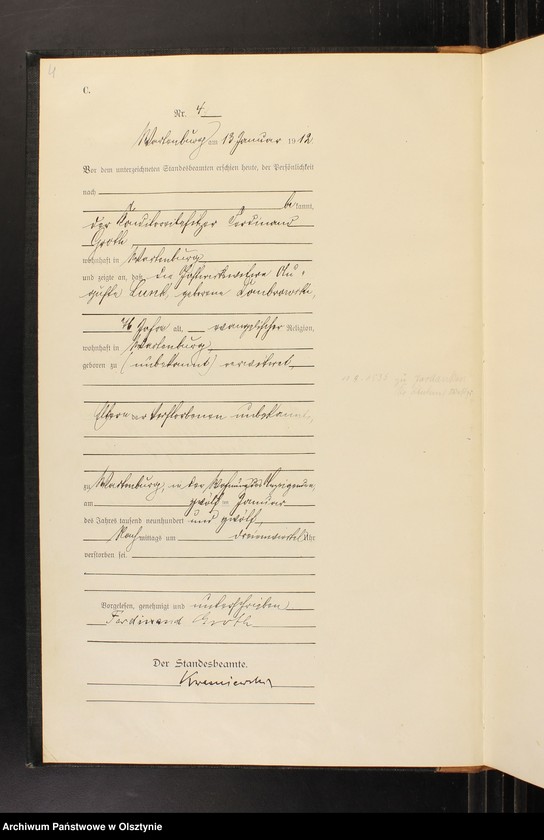 4
C.
Nr. 4
Wartenburg am 13 Januar 1912.
Vor dem unterzeichneten Standesbeamten erschien heute, der Persönlichkeit
nach
bekannt,
der Ferdinand
Groth
wohnhaft in Wartenburg
und zeigte an, daß die Au-
guste Lunk, geborene Dombrowski,
46 Jahre alt, evangelischer Religion,
wohnhaft in Wartenburg
geboren zu (unbekannt) verwitwet
Eltern der Verstorbenen unbekannt,
zu Wartenburg, in der Wohnung des Anzeigenden,
am zwölf ten Januar
des Jahres tausend neunhundert und zwölf
Nachmittags um Uhr
verstorben sei.
Vorgelesen, genehmigt und unterschrieben
Ferdinand Groth
Der Standesbeamte.
Archiwum Państwowe w Olsztynie